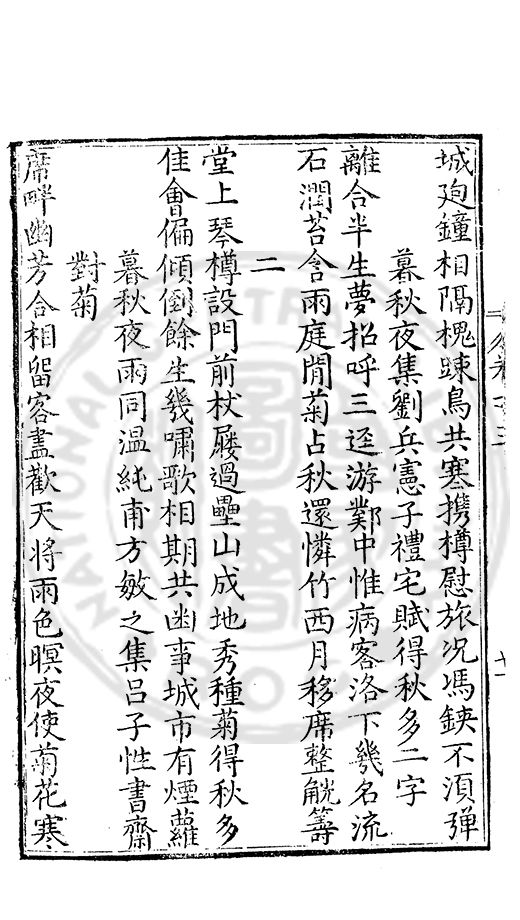 城迥鐘相隔槐踈鳥共寒携樽慰旅况馮鋏不須彈
暮秋夜集劉兵憲子禮宅賦得秋多二字
離合半生夢招呼三逕游鄴中惟病客洛下幾名流
石潤苔含雨庭閒菊占秋還憐竹西月移席整觥籌
二
堂上琴樽設門前杖屨過壘山成地秀種菊得秋多
佳會偏傾倒餘生幾嘯歌相期共幽事城市有煙蘿
暮秋夜雨同温純甫方敏之集吕子性書齋
對菊
席畔幽芳合相留客盡歡天将雨色暝夜使菊花寒